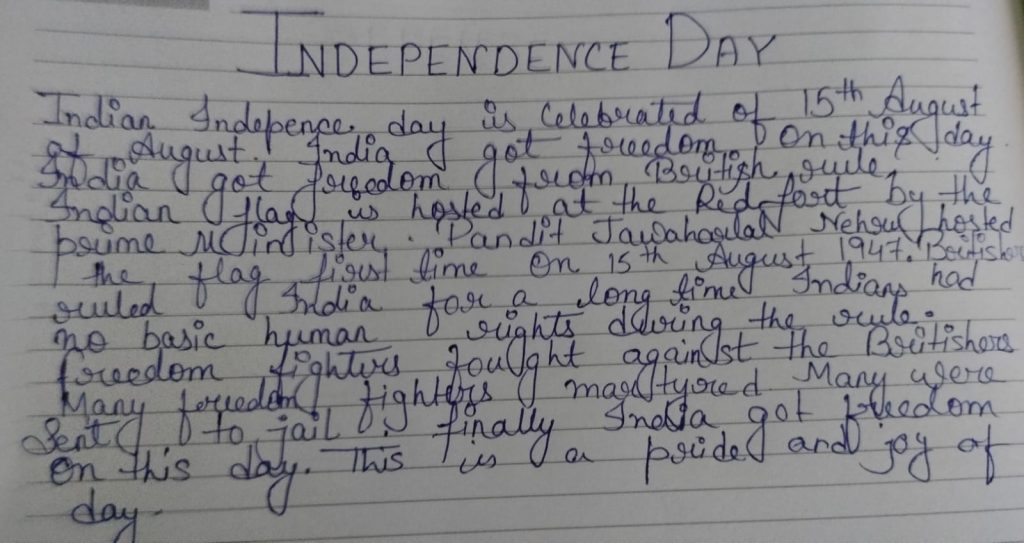 INDEPENDENCE DAY
Indian Indepence day is Celebrated of 15th August
of August. India got freedom on this day
India got freedom from British rule.
Indian flag is hosted at the Red fort by the
prime Minister. Pandit Jawaharlal Nehru hosted
the flag first time on 15th August 1947. Britishers
ruled India for a long time Indians had
no basic human rights during the rule.
freedom fighters fought against the Britishers
Many freedom fighters martyred Many were
Sent to jail. finally India got freedom
on this day. This is a pride and joy of
day.